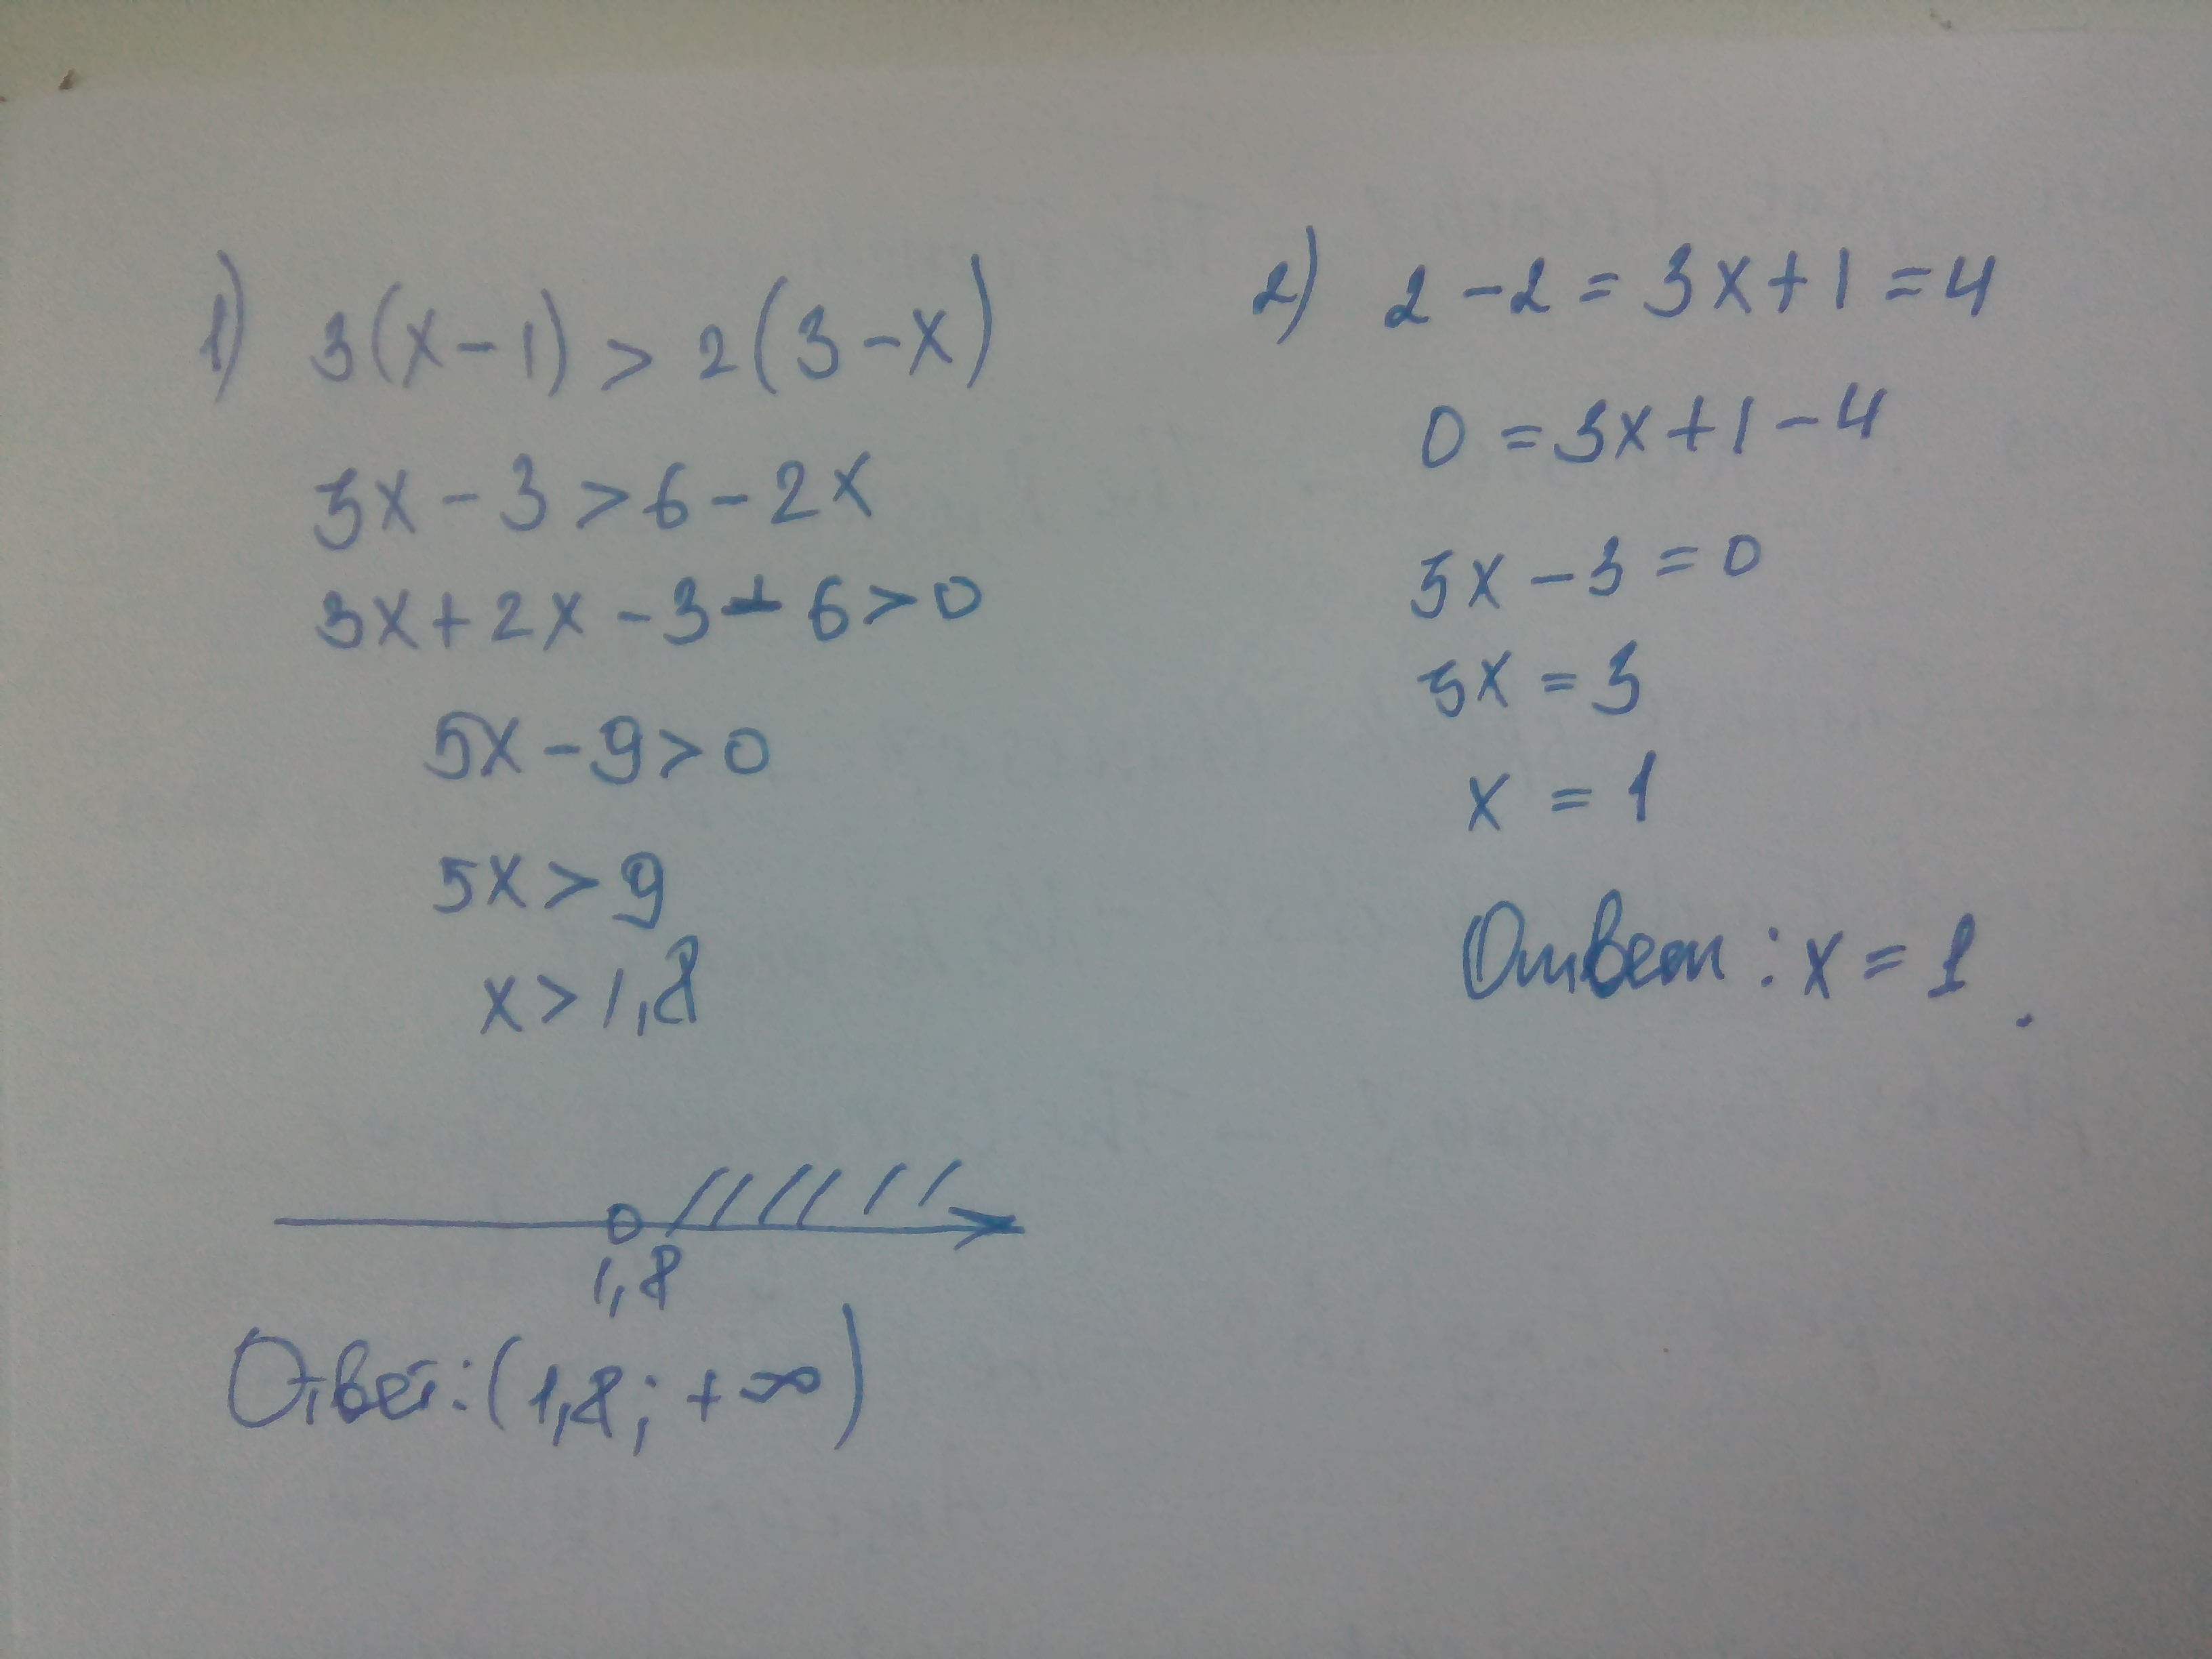 1) 3(x-1) > 2(3-x)
3x - 3 > 6 - 2x
3x + 2x - 3 - 6 > 0
5x - 9 > 0
5x > 9
x > 1,8
1,8
Ответ: (1,8; +∞)
2) 2 - 2 = 3x + 1 = 4
0 = 3x + 1 - 4
3x - 3 = 0
3x = 3
x = 1
Ответ: x = 1.